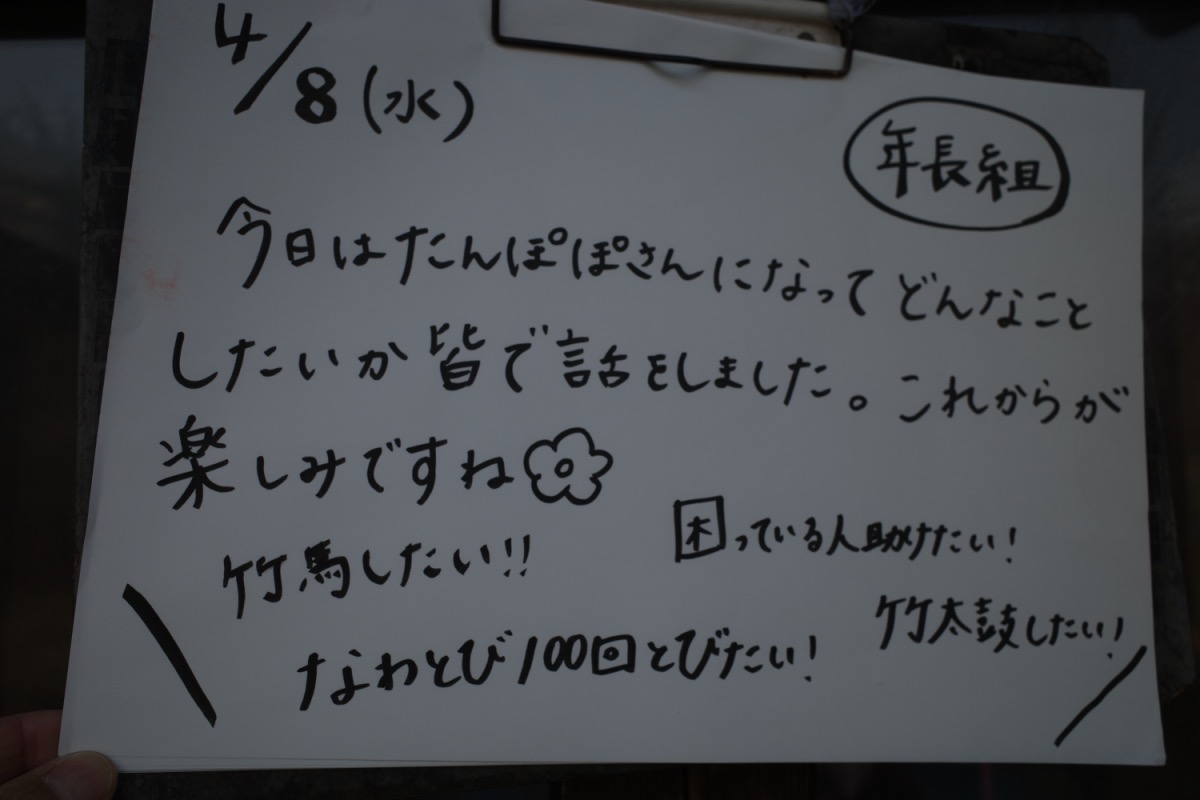 4/8(水)
年長組
今日はたんぽぽさんになってどんなこと
したいか皆で話をしました。これからが
楽しみですね
竹馬したい!!
困っている人助けたい!
なわとび100回とびたい!
竹太鼓したい!